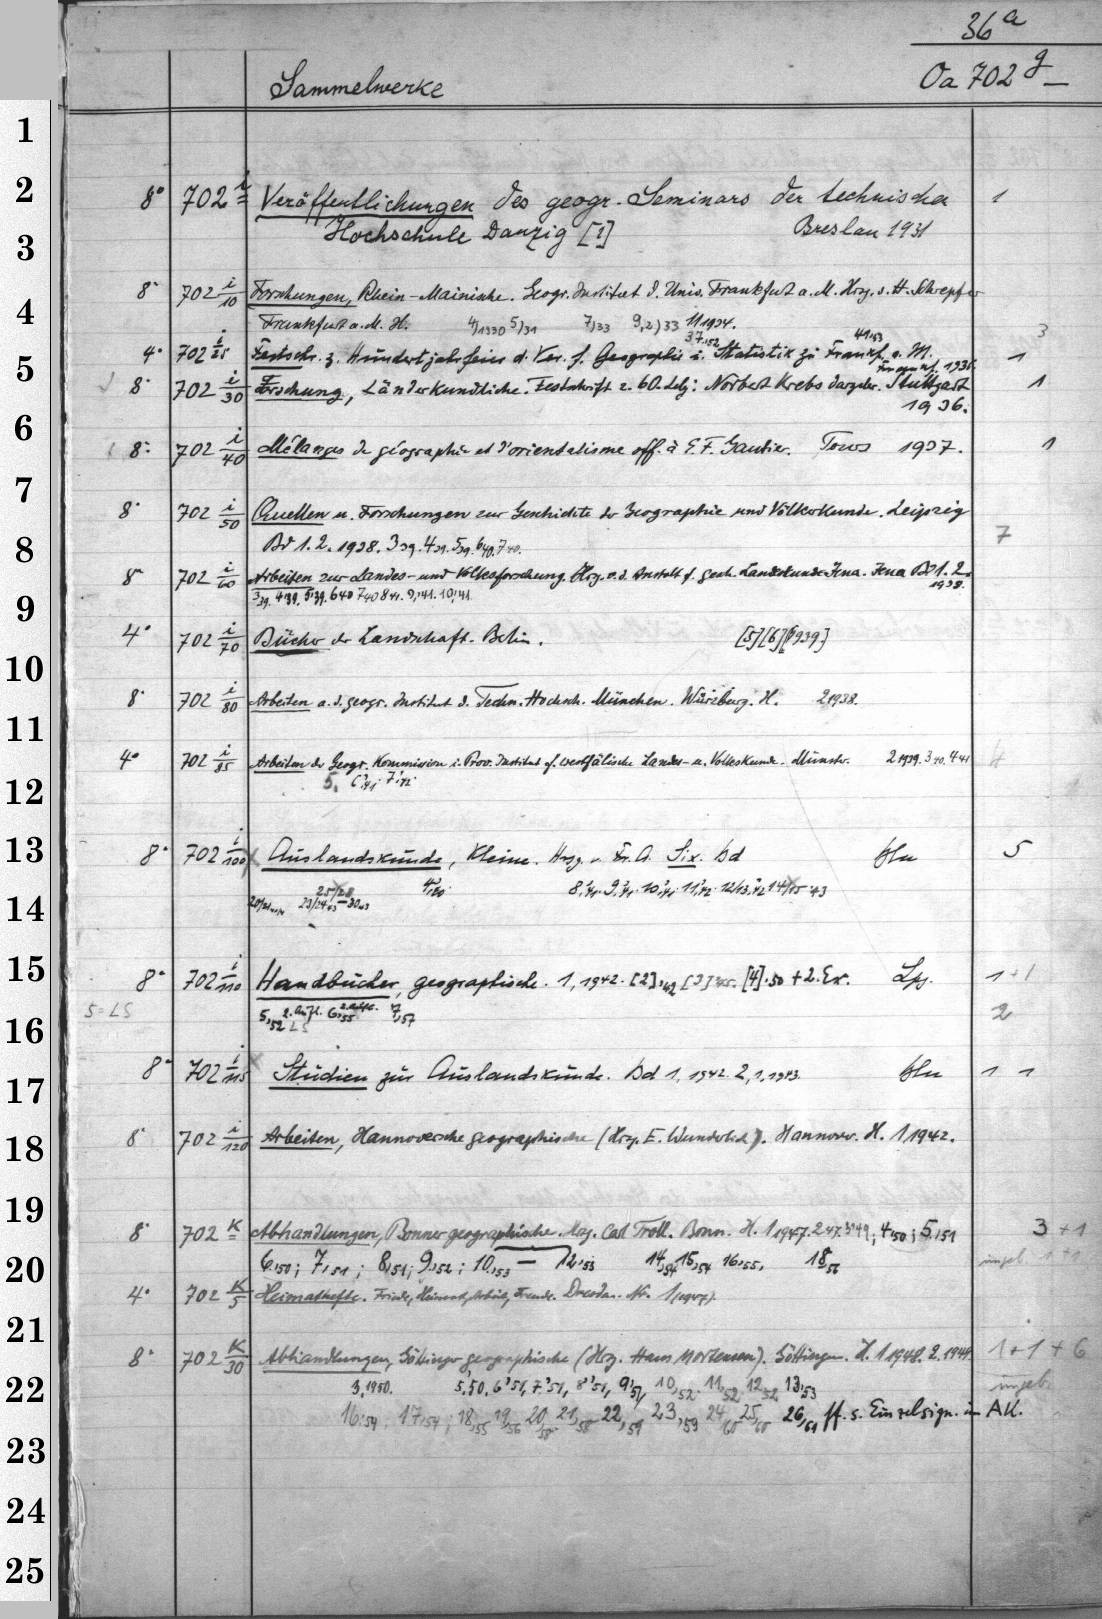 36a
Sammelwerke
Oa 702 g –
1
2
8° 702 i Veröffentlichungen des geogr. Seminars der technischen 1
3
Hochschule Danzig [1] Breslau 1931
8° 702 i/10 Forschungen, Rhein-Mainische. Geogr. Institut d. Univ. Frankfurt a. M. Hrg. v. H. Schrepfer
4
Frankfurt a. M. H. 4/1930 5/31 7/33 9,2)33 11 1934. 3
5
4° 702 i/25 Festschr. z. Hundertjahrfeier d. Ver. f. Geographie u. Statistik zu Frankf. a. M. 1936. 1
8° 702 i/30 Forschung, Länderkundliche. Festschrift z. 60. Norbert Krebs dargebr. Stuttgart 1
1936.
6
8° 702 i/40 Mélanges de géographie et d'orientalisme off. à E. F. Gautier. Tours 1937. 1
7
8° 702 i/50 Quellen u. Forschungen zur Geschichte der Geographie und Völkerkunde. Leipzig
8
Bd 1. 2. 1938. 3 39. 4 39. 5 39. 6 40. 7 40. 7
8° 702 i/60 Arbeiten zur Landes- und Volksforschung. Hrg. v. d. Anstalt f. gesch. Landeskunde Jena. Jena Bd 1. 2. 1938.
9
3 39. 4 39. 5 39. 6 40 7 40 8 41. 9, 41. 10, 41.
4° 702 i/70 Bücher der Landschaft. Berlin. [5] [6] [1939]
10
8° 702 i/80 Arbeiten a. d. geogr. Institut d. Techn. Hochsch. München. Würzburg. H. 2 1938.
11
4° 702 i/85 Arbeiten der Geogr. Kommission i. Prov. Institut f. westfälische Landes- u. Volkskunde. Münster. 2 1939. 3 40. 4 41 4
12
5. 6, 41. 7, 42.
13
8° 702 i/100 Auslandskunde, Kleine. Hrsg. v. Fr. A. Six. Bd bln 5
8, 41. 9, 41. 10, 41. 11, 42. 12/13, 42 14/15 43
14
23/24 43 25/28 –30 43
15
8° 702 i/110 Handbücher, geographische. 1, 1942. [2], 42 [3] [4], 50 + 2. Ex. Lpz. 1 + 1
5 = LS 5, 52 2. Aufl. LS 6, 55 2. Aufl. 7, 57 2
16
8° 702 i/115 Studien zur Auslandskunde. Bd 1, 1942. 2, 1, 1943. bln 1 1
17
8° 702 i/120 Arbeiten, Hannoversche geographische (Hrg. E. Wunderlich). Hannover. H. 1, 1942.
18
19
8° 702 K Abhandlungen, Bonner geographische. Hrg. Carl Troll. Bonn. H. 1 1947. 2 47. 3 49, 4, 50; 5, 51 3 + 1
20
6, 50; 7, 51; 8, 51; 9, 52; 10, 53 – 12, 53 14, 54 15, 54 16, 55, 18, 56 ungeb. 1 + 1
4° 702 K/5 Heimathefte. Friede, Heimat, Arbeit, Freude. Dresden. Nr. 1 (1947).
21
8° 702 K/30 Abhandlungen, Göttinger geographische (Hrg. Hans Mortensen). Göttingen. H. 1 1948. 2. 1949. 1 + 1 + 6
22
3, 1950. 5, 50, 6, 51, 7, 51, 8, 51, 9, 51, 10, 52. 11, 52, 12, 52 13, 53 ungeb.
16, 54. 17, 54; 18, 55 19, 56 20, 58 21, 58 22, 59 23, 59 24, 60 25, 60 26, 61 ff. s. Einzelsign. im AK.
23
24
25